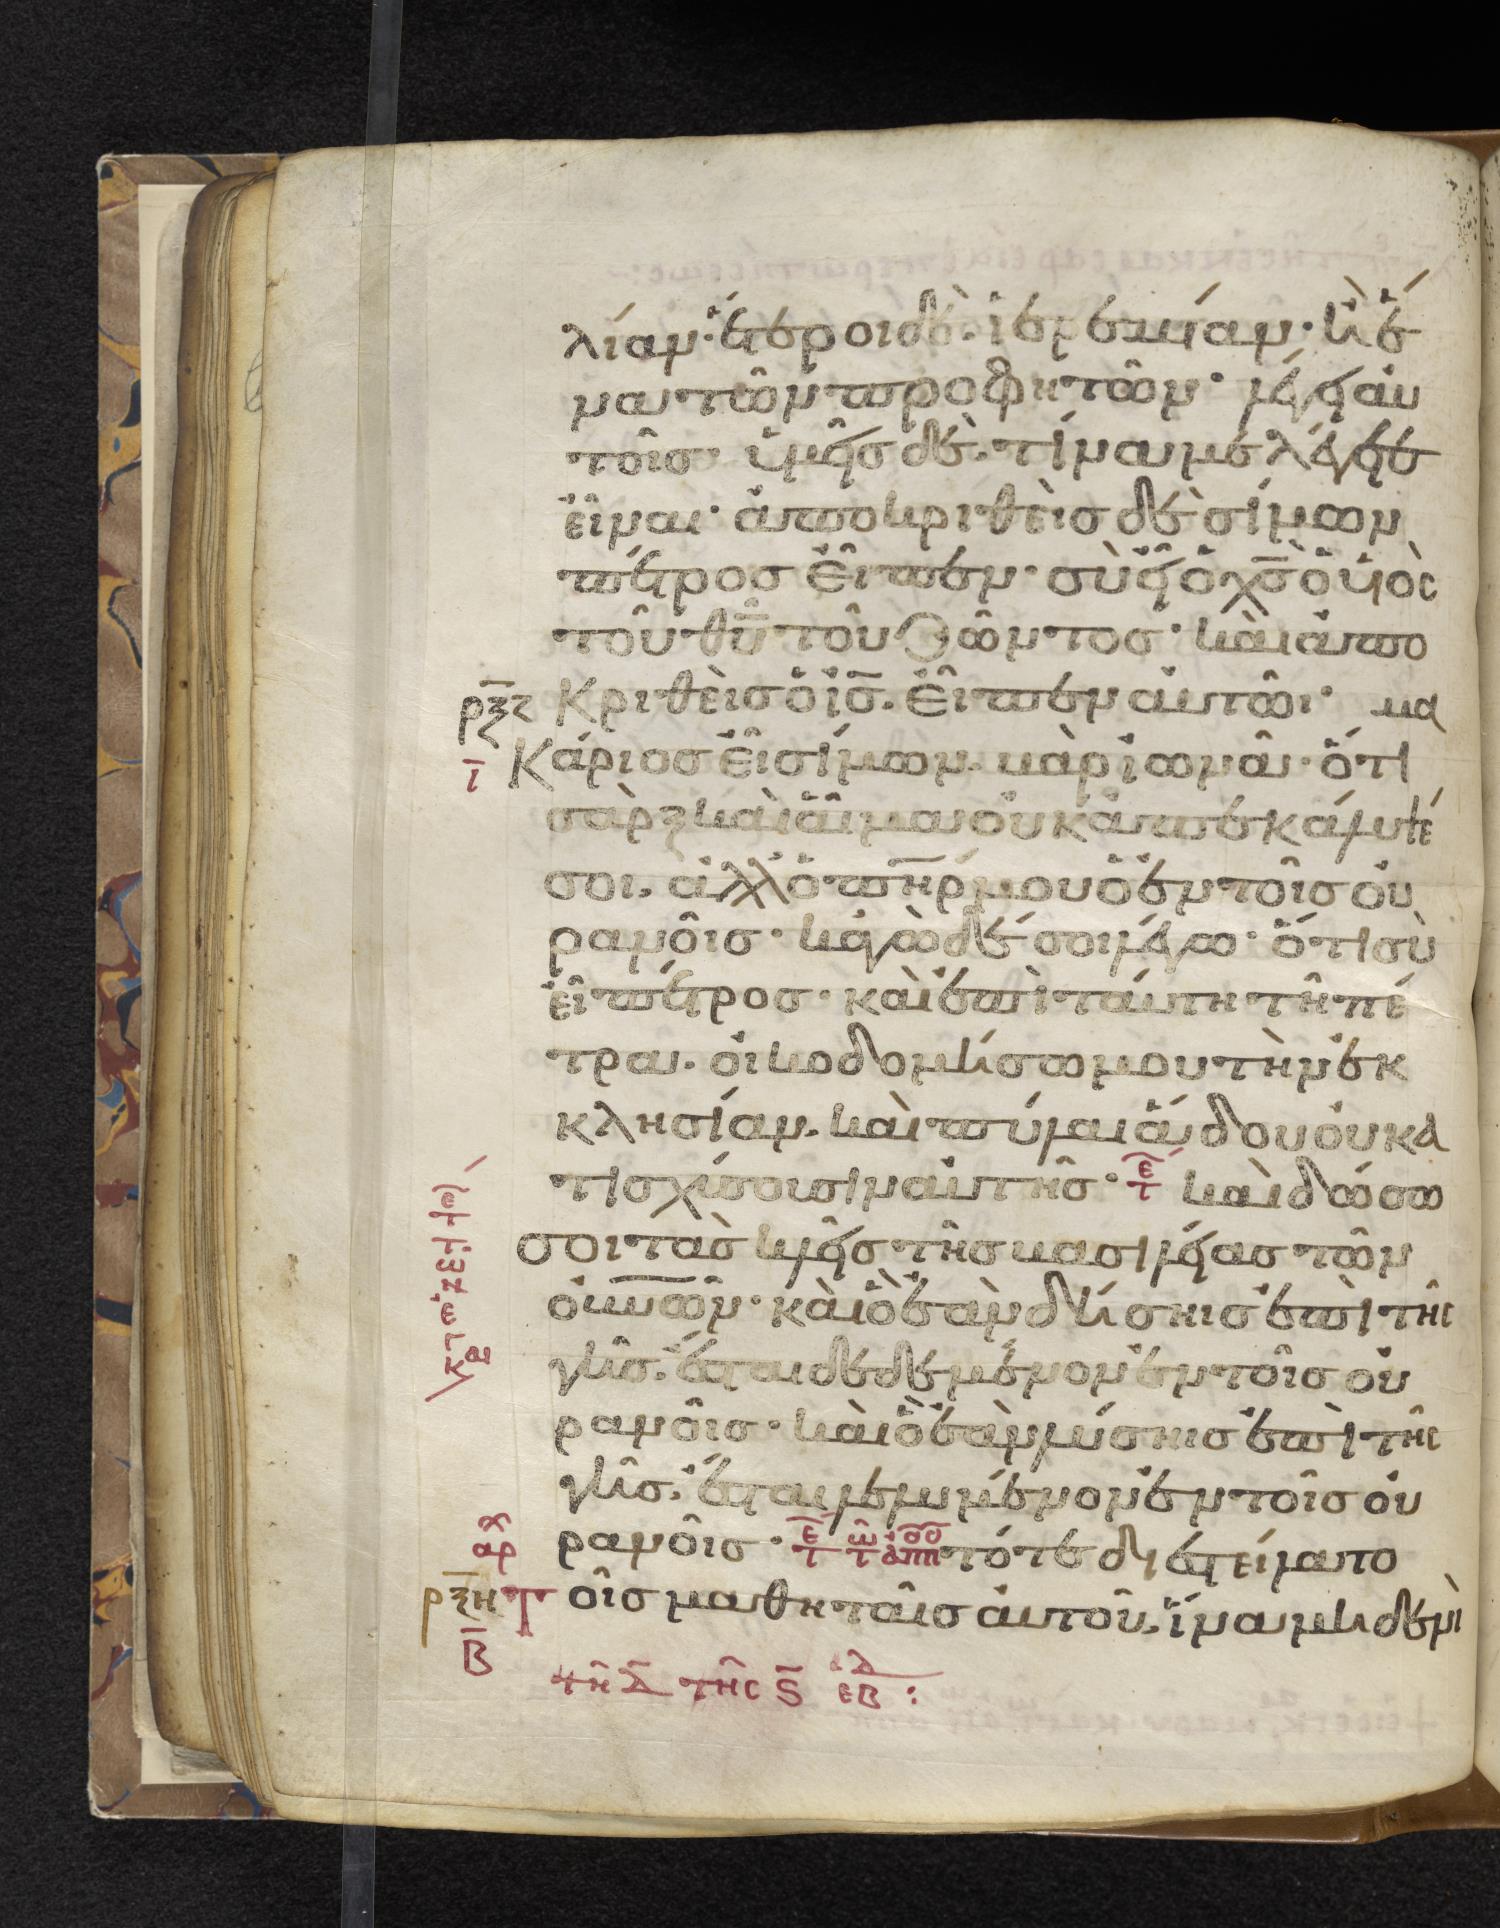 λίαν· ἕτεροι δὲ. ἱερεμίαν· ἢ ἕ
να τῶν προφητῶν· λέγει αὐ
τοῖς· ὑμεῖς δὲ. τίνα με λέγετε
εἶναι· ἀποκριθεὶς δὲ σίμων
πέτρος εἶπεν· σὺ εἶ ὁ χς ὁ υἱὸς
τοῦ θυ τοῦ ζῶντος· καὶ ἀπο
ρξζ κριθεὶς ὁ ις. εἶπεν αὐτῶι· μα
ι κάριος εἶ σίμων. βὰρ ἰωνᾶ· ὅτι
σὰρξ καὶ αἷμα οὐκ ἀπεκάλυψέ
σοι. ἀλλ' ὁ πηρ μου ὁ ἐν τοῖς οὐ
ρανοῖς· κἀγὼ δέ σοι λέγω· ὅτι σὺ
εἶ πέτρος· καὶ ἐπὶ ταύτη τῆ πέ
τρα. οἰκοδομήσω μου τὴν ἐκ
κλησίαν. καὶ πύλαι ἅδου οὐ κα
τισχύσουσιν αὐτῆς· τε καὶ δώσω
σοι τὰς κλεῖς τῆς βασιλείας τῶν
οὐνῶν· καὶ ὃ ἐὰν δήσηις ἐπὶ τῆς
γῆς. ἔσται δεδεμένον ἐν τοῖς οὐ
ρανοῖς· καὶ ὃ ἐὰν λύσηις ἐπὶ τῆς
γῆς. ἔσται λελυμένον ἐν τοῖς οὐ
αρχ ρανοῖς· τε τω αππ τότε διεστείλατο
ρξη τοῖς μαθηταῖς αὐτοῦ. ἵνα μηδενὶ
β
τῆ δ τῆς ς εβδ: